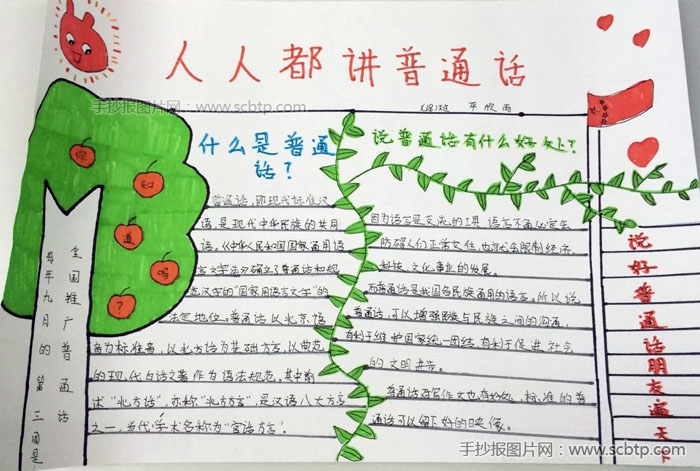 人人都讲普通话
手抄报图片网：www.scbtp.com
你
知
道
吗
?
全国推广普通话
每年九月的第三周是
什么是普通
话？
普通话，即现代标准汉
语，是现代中华民族的共同
语。《中华人民和国国家通用语
言文字法》确立了普通话和规
范汉字的“国家用语言文字”的
法定地位。普通话以北京语
音为标准音，以北方话为基础方言，以典范
的现代白话文著作为语法规范。其中前
述“北方话”，亦称“北方方言”，是汉语八大方言
之一，当代学术名称为“官话方言”。
说普通话有什么好处？
因为语言是交流的工具，语言不通必定会
防碍人们正常交往，也就会限制经济、
科技、文化事业的发展。
而普通话是我国各民族通用的语言。所以说
普通话，可以增强民族与民族之间的沟通，
有利于维护国家统一团结，有利于促进社会
的文明进步。
普通话对写作文也有好处，标准的普
通话可以留下好的映像。
说好普通话朋友遍天下
手抄报图片网：www.scbtp.com